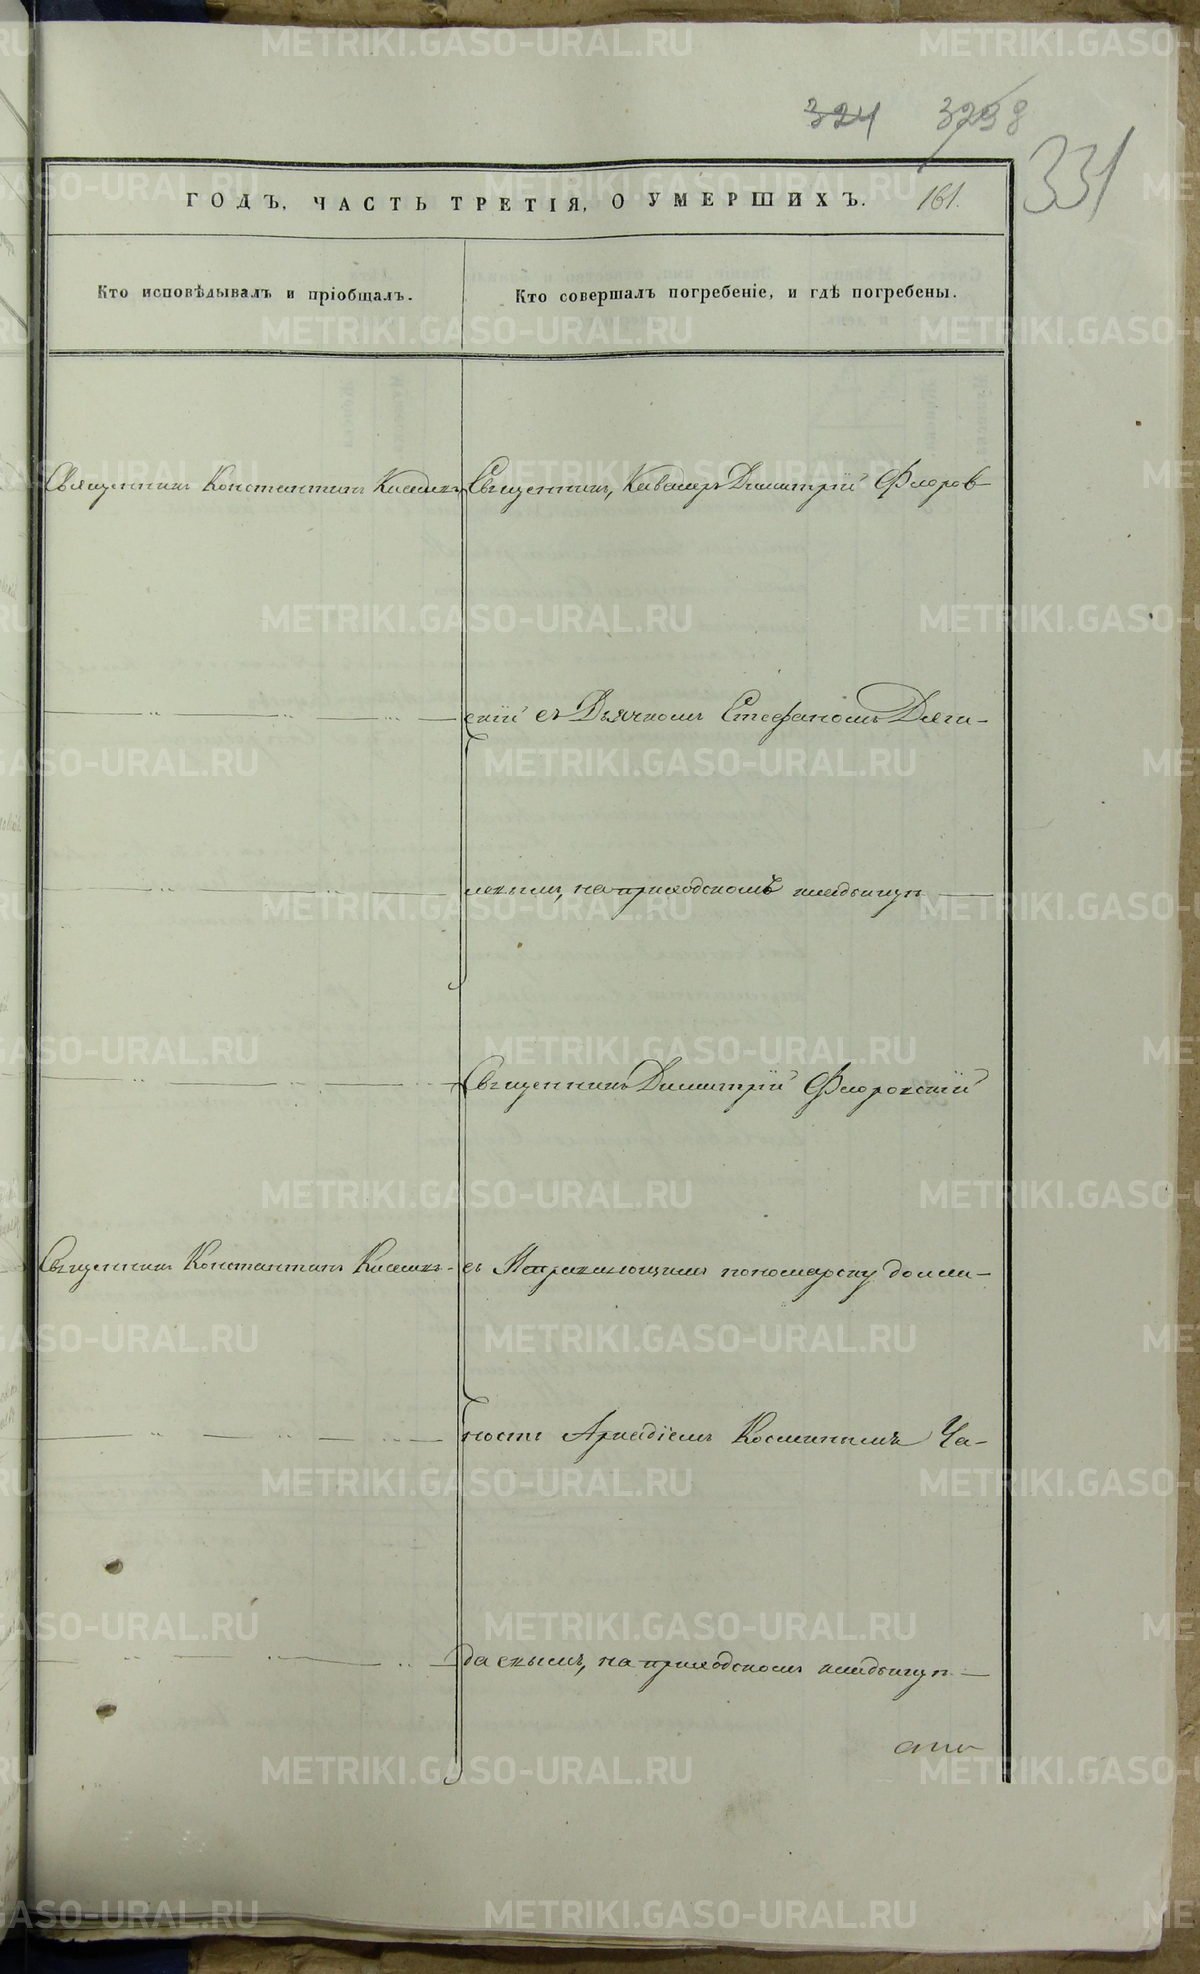 324 3298
331
ГОДЪ, ЧАСТЬ ТРЕТІЯ, О УМЕРШИХЪ. 161.
Кто исповѣдывалъ и пріобщалъ.
Кто совершалъ погребеніе, и гдѣ погребены.
Священникъ Константинъ
Священникъ, Кавалеръ Димитрій Флоров
скій съ Дьячкомъ Стефаномъ Дяги-
левымъ, на приходскомъ кладбищѣ
Священникъ Димитрій Флоровскій
Священникъ Константинъ
съ Исправляющимъ пономарску должн-
ность Аркадіемъ Косминымъ Ча-
даевымъ, на приходскомъ кладбищѣ
METRIKI.GASO-URAL.RU